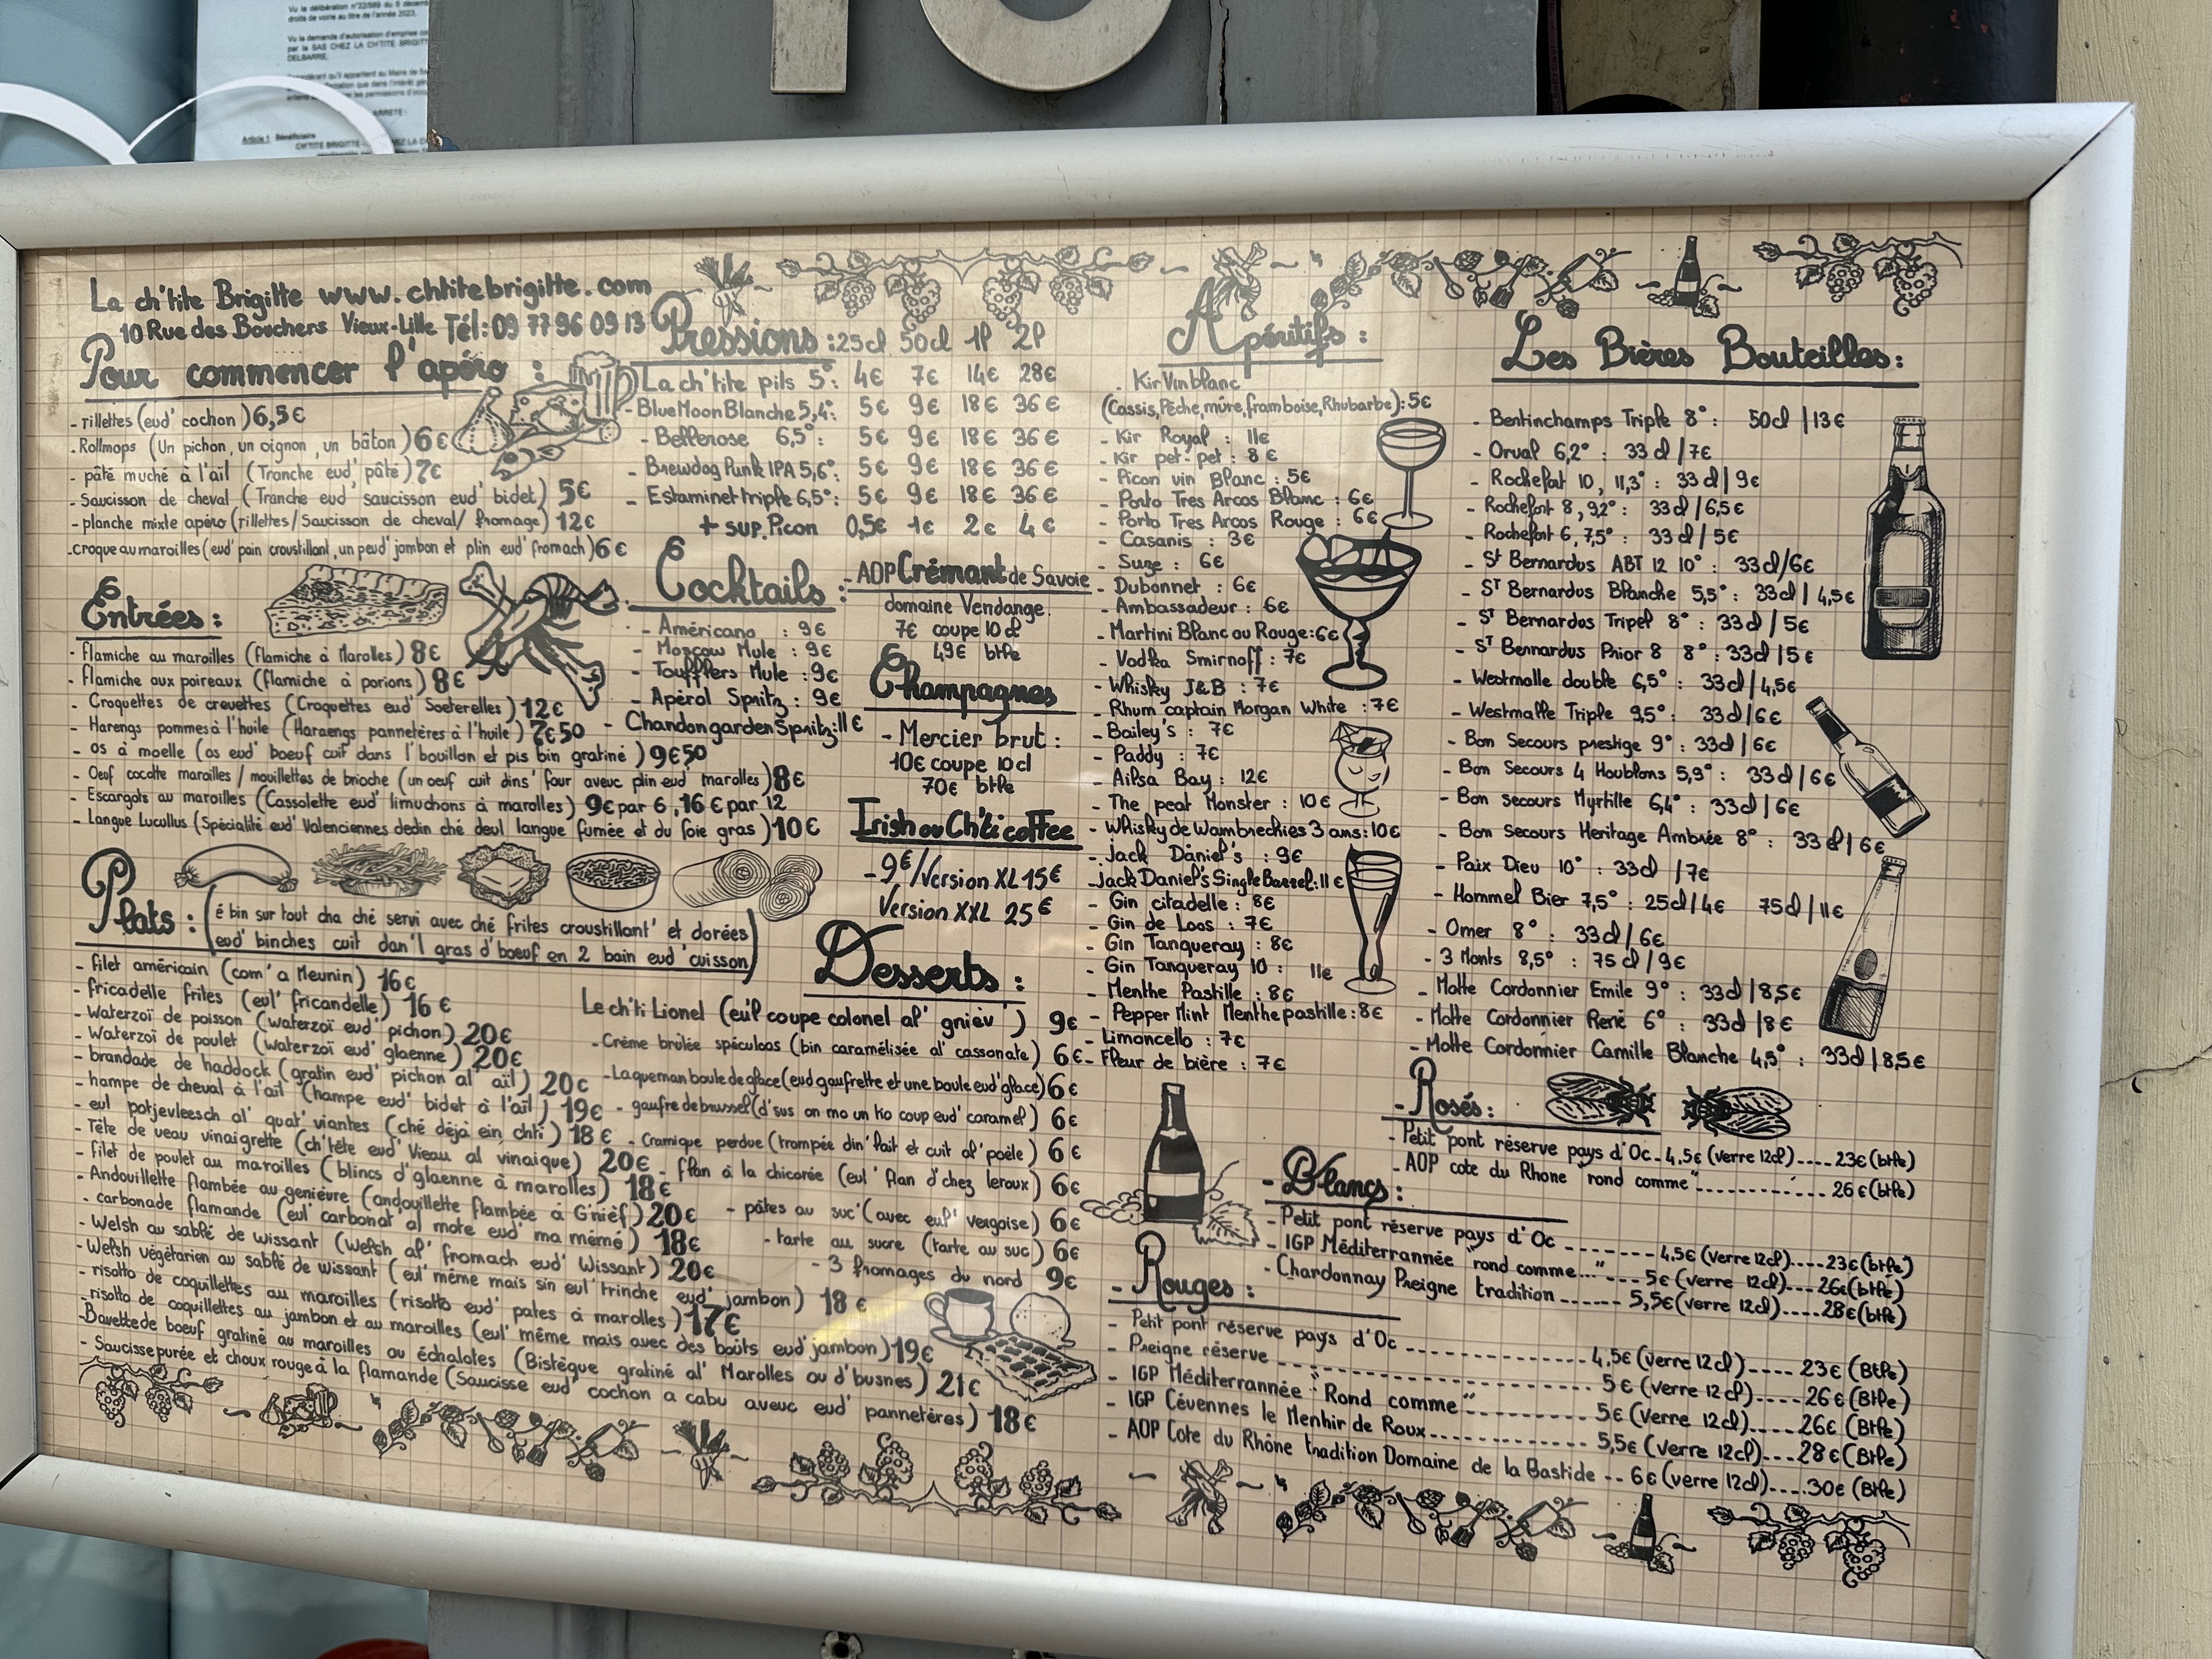 Vu la délibération n°22/589 du 9 décem
droits de voirie au titre de l'année 2023,
Vu la demande d'autorisation d'emprise
par la SAS CHEZ LA CH'TITE BRIGIT
DELBARRE,
ARRETE :
Article 1 Bénéficiaire
CH'TITE BRIGITTE
10
La ch'tite Brigitte www.chtitebrigitte.com
10 Rue des Bouchers Vieux-Lille Tél: 09 77 96 09 13
Pour commencer l'apéro :
- rillettes (eud' cochon) 6,5€
- Rollmops (Un pichon, un oignon, un bâton) 6€
- pâté muché à l'ail (Tranche eud' pâté) 7€
- Saucisson de cheval (Tranche eud' saucisson eud' bidet) 5€
- planche mixte apéro (rillettes/Saucisson de cheval/ fromage) 12€
- croque au maroilles (eud' pain croustillant, un peud' jambon et plin eud' fromach) 6€
Entrées :
- flamiche au maroilles (flamiche à Marolles) 8€
- flamiche aux poireaux (flamiche à porions) 8€
- Croquettes de crevettes (Croquettes eud' Soeterelles) 12€
- Harengs pommes à l'huile (Haraengs pannetères à l'huile) 7€50
- os à moelle (os eud' boeuf cuit dans l'bouillon et pis bin gratiné) 9€50
- Oeuf cocotte maroilles / mouillettes de brioche (un oeuf cuit dins' four aveuc plin eud' marolles) 8€
- Escargots au maroilles (Cassolette eud' limuchons à marolles) 9€ par 6, 16€ par 12
- Langue Lucullus (Spécialité eud' Valenciennes dedin ché deul langue fumée et du foie gras) 10€
Plats : (é bin sur tout cha ché servi avec ché frites croustillant' et dorées
eud' binches cuit dan'l gras d'boeuf en 2 bain eud' cuisson)
- filet américain (com' a Meunin) 16€
- fricadelle frites (eul' fricandelle) 16€
- Waterzoï de poisson (waterzoï eud' pichon) 20€
- Waterzoï de poulet (waterzoï eud' glaenne) 20€
- brandade de haddock (gratin eud' pichon al' aïl) 20€
- hampe de cheval à l'ail (hampe eud' bidet à l'aïl) 19€
- eul potjevleesch al' quat' viantes (ché déjà ein chti) 18€
- Tête de veau vinaigrette (ch'tête eud' Vieau al vinaique) 20€
- filet de poulet au maroilles (blincs d'glaenne à marolles) 18€
- Andouillette flambée au genièvre (andouillette flambée à G'nièf) 20€
- carbonade flamande (eul' carbonat al mote eud' ma mémé) 18€
- Welsh au sablé de wissant (Welsh al' fromach eud' Wissant) 20€
- Welsh végétarien au sablé de wissant (eul' même mais sin eul' trinche eud' jambon) 18€
- risotto de coquillettes au maroilles (risotto eud' pates à marolles) 17€
- risotto de coquillettes au jambon et au maroilles (eul' même mais avec des boûts eud' jambon) 19€
- Bavette de boeuf gratiné au maroilles ou échalotes (Bistèque gratiné al' Marolles ou d'busnes) 21€
- Saucisse purée et choux rouge à la flamande (Saucisse eud' cochon a cabu aveuc eud' pannetères) 18€
Pressions : 25cl 50cl 1l 2l
La ch'tite pils 5°: 4€ 7€ 14€ 28€
- Blue Moon Blanche 5,4°: 5€ 9€ 18€ 36€
- Bellerose 6,5°: 5€ 9€ 18€ 36€
- Brewdog Punk IPA 5,6°: 5€ 9€ 18€ 36€
- Estaminet triple 6,5°: 5€ 9€ 18€ 36€
+ sup. Picon 0,5€ 1€ 2€ 4€
Cocktails :
- Américano : 9€
- Moscow Mule : 9€
- Toufflers Mule : 9€
- Apérol Spritz : 9€
- Chandon garden Spritz: 11€
- AOP Crémant de Savoie
domaine Vendange.
7€ coupe 10cl
49€ btlle
Champagnes
- Mercier brut :
10€ coupe 10cl
70€ btlle
Irish ou Ch'ti coffee
- 9€/Version XL 15€
Version XXL 25€
Desserts :
Le ch'ti Lionel (eu'l coupe colonel al' gnièv') 9€
- Crème brûlée spéculoos (bin caramélisée al' cassonate) 6€
- La queman boule de glace (eud gaufrette et une boule eud' glace) 6€
- gaufre de brussel (d'sus on mo un tio coup eud' caramel) 6€
- Cramique perdue (trompée din' lait et cuit al' poële) 6€
- flan à la chicorée (eul' flan d'chez leroux) 6€
- pâtes au suc' (avec eul' vergoise) 6€
- tarte au sucre (tarte au suc) 6€
- 3 fromages du nord 9€
Apéritifs :
. Kir Vin blanc
(Cassis, Pêche, mûre, framboise, Rhubarbe) : 5€
- Kir Royal : 11€
- Kir pet-pet : 8€
- Picon vin Blanc : 5€
- Porto Tres Arcos Blanc : 6€
- Porto Tres Arcos Rouge : 6€
- Casanis : 3€
- Suze : 6€
- Dubonnet : 6€
- Ambassadeur : 6€
- Martini Blanc ou Rouge : 6€
- Vodka Smirnoff : 7€
- Whisky J&B : 7€
- Rhum captain Morgan White : 7€
- Bailey's : 7€
- Paddy : 7€
- Ailsa Bay : 12€
- The peat Monster : 10€
- Whisky de Wambrechies 3 ans : 10€
- Jack Daniel's : 9€
- Jack Daniel's Single Barrel : 11€
- Gin citadelle : 8€
- Gin de Loos : 7€
- Gin Tanqueray : 8€
- Gin Tanqueray 10 : 11€
- Menthe Pastille : 8€
- Pepper Mint Menthe pastille : 8€
- Limoncello : 7€
- Fleur de bière : 7€
Les Bières Bouteilles :
- Bertinchamps Triple 8° : 50cl | 13€
- Orval 6,2° : 33cl / 7€
- Rochefort 10, 11,3° : 33cl | 9€
- Rochefort 8, 9,2° : 33cl / 6,5€
- Rochefort 6, 7,5° : 33cl / 5€
- St Bernardus ABT 12 10° : 33cl / 6€
- ST Bernardus Blanche 5,5° : 33cl | 4,5€
- ST Bernardus Tripel 8° : 33cl / 5€
- ST Bernardus Prior 8 8° : 33cl | 5€
- Westmalle double 6,5° : 33cl / 4,5€
- Westmalle Triple 9,5° : 33cl / 6€
- Bon Secours prestige 9° : 33cl | 6€
- Bon Secours 4 Houblons 5,9° : 33cl / 6€
- Bon secours Myrtille 6,4° : 33cl / 6€
- Bon Secours Heritage Ambrée 8° : 33cl / 6€
- Paix Dieu 10° : 33cl / 7€
- Hommel Bier 7,5° : 25cl / 4€ 75cl | 11€
- Omer 8° : 33cl / 6€
- 3 Monts 8,5° : 75cl / 9€
- Motte Cordonnier Emile 9° : 33cl | 8,5€
- Motte Cordonnier René 6° : 33cl | 8€
- Motte Cordonnier Camille Blanche 4,5° : 33cl | 8,5€
- Rosés :
- Petit pont réserve pays d'Oc - 4,5€ (verre 12cl) .... 23€ (btlle)
- AOP cote du Rhone "rond comme" ............ 26€ (btlle)
- Blancs :
- Petit pont réserve pays d'Oc ........ 4,5€ (verre 12cl) .... 23€ (btlle)
- IGP Méditerrannée "rond comme..." --- 5€ (verre 12cl) .... 26€ (btlle)
- Chardonnay Preigne tradition ...... 5,5€ (verre 12cl) .... 28€ (btlle)
- Rouges :
- Petit pont réserve pays d'Oc ............ 4,5€ (verre 12cl) .... 23€ (Btlle)
- Preigne réserve ............ 5€ (verre 12cl) .... 26€ (Btlle)
- IGP Méditerrannée "Rond comme" ........ 5€ (Verre 12cl) .... 26€ (Btlle)
- IGP Cévennes le Menhir de Roux ........ 5,5€ (verre 12cl) ... 28€ (Btlle)
- AOP Cote du Rhône tradition Domaine de la Bastide -- 6€ (verre 12cl) .... 30€ (Btlle)